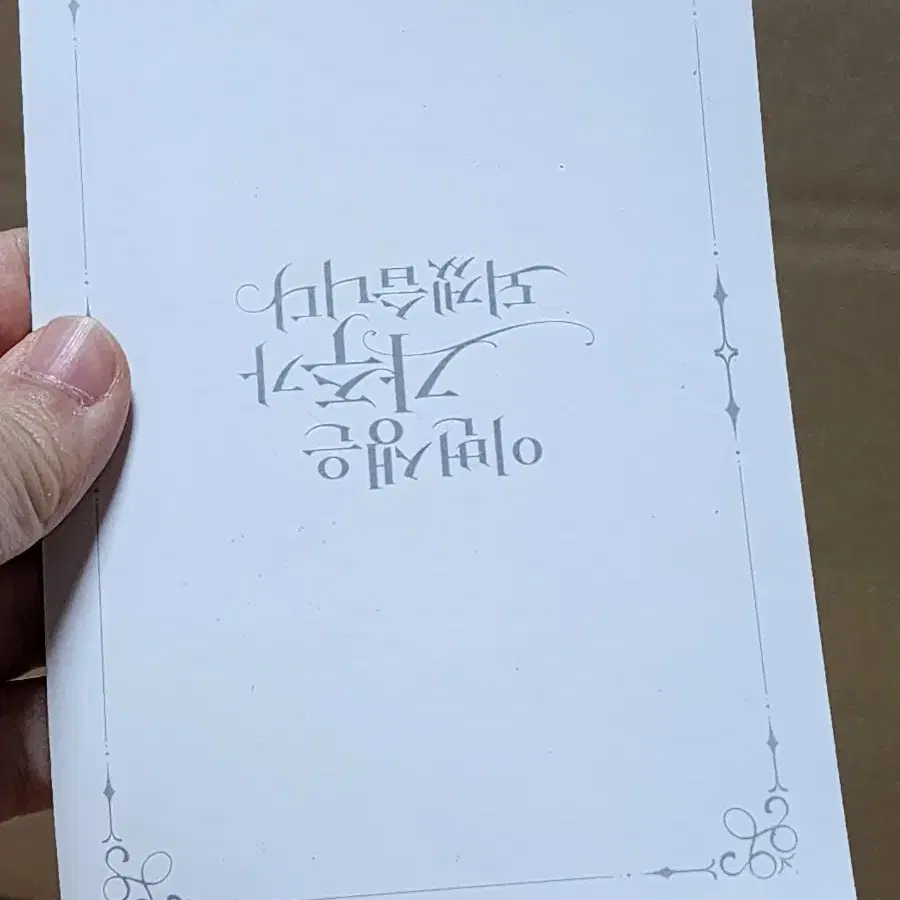 이번 생은
가주가
되겠습니다